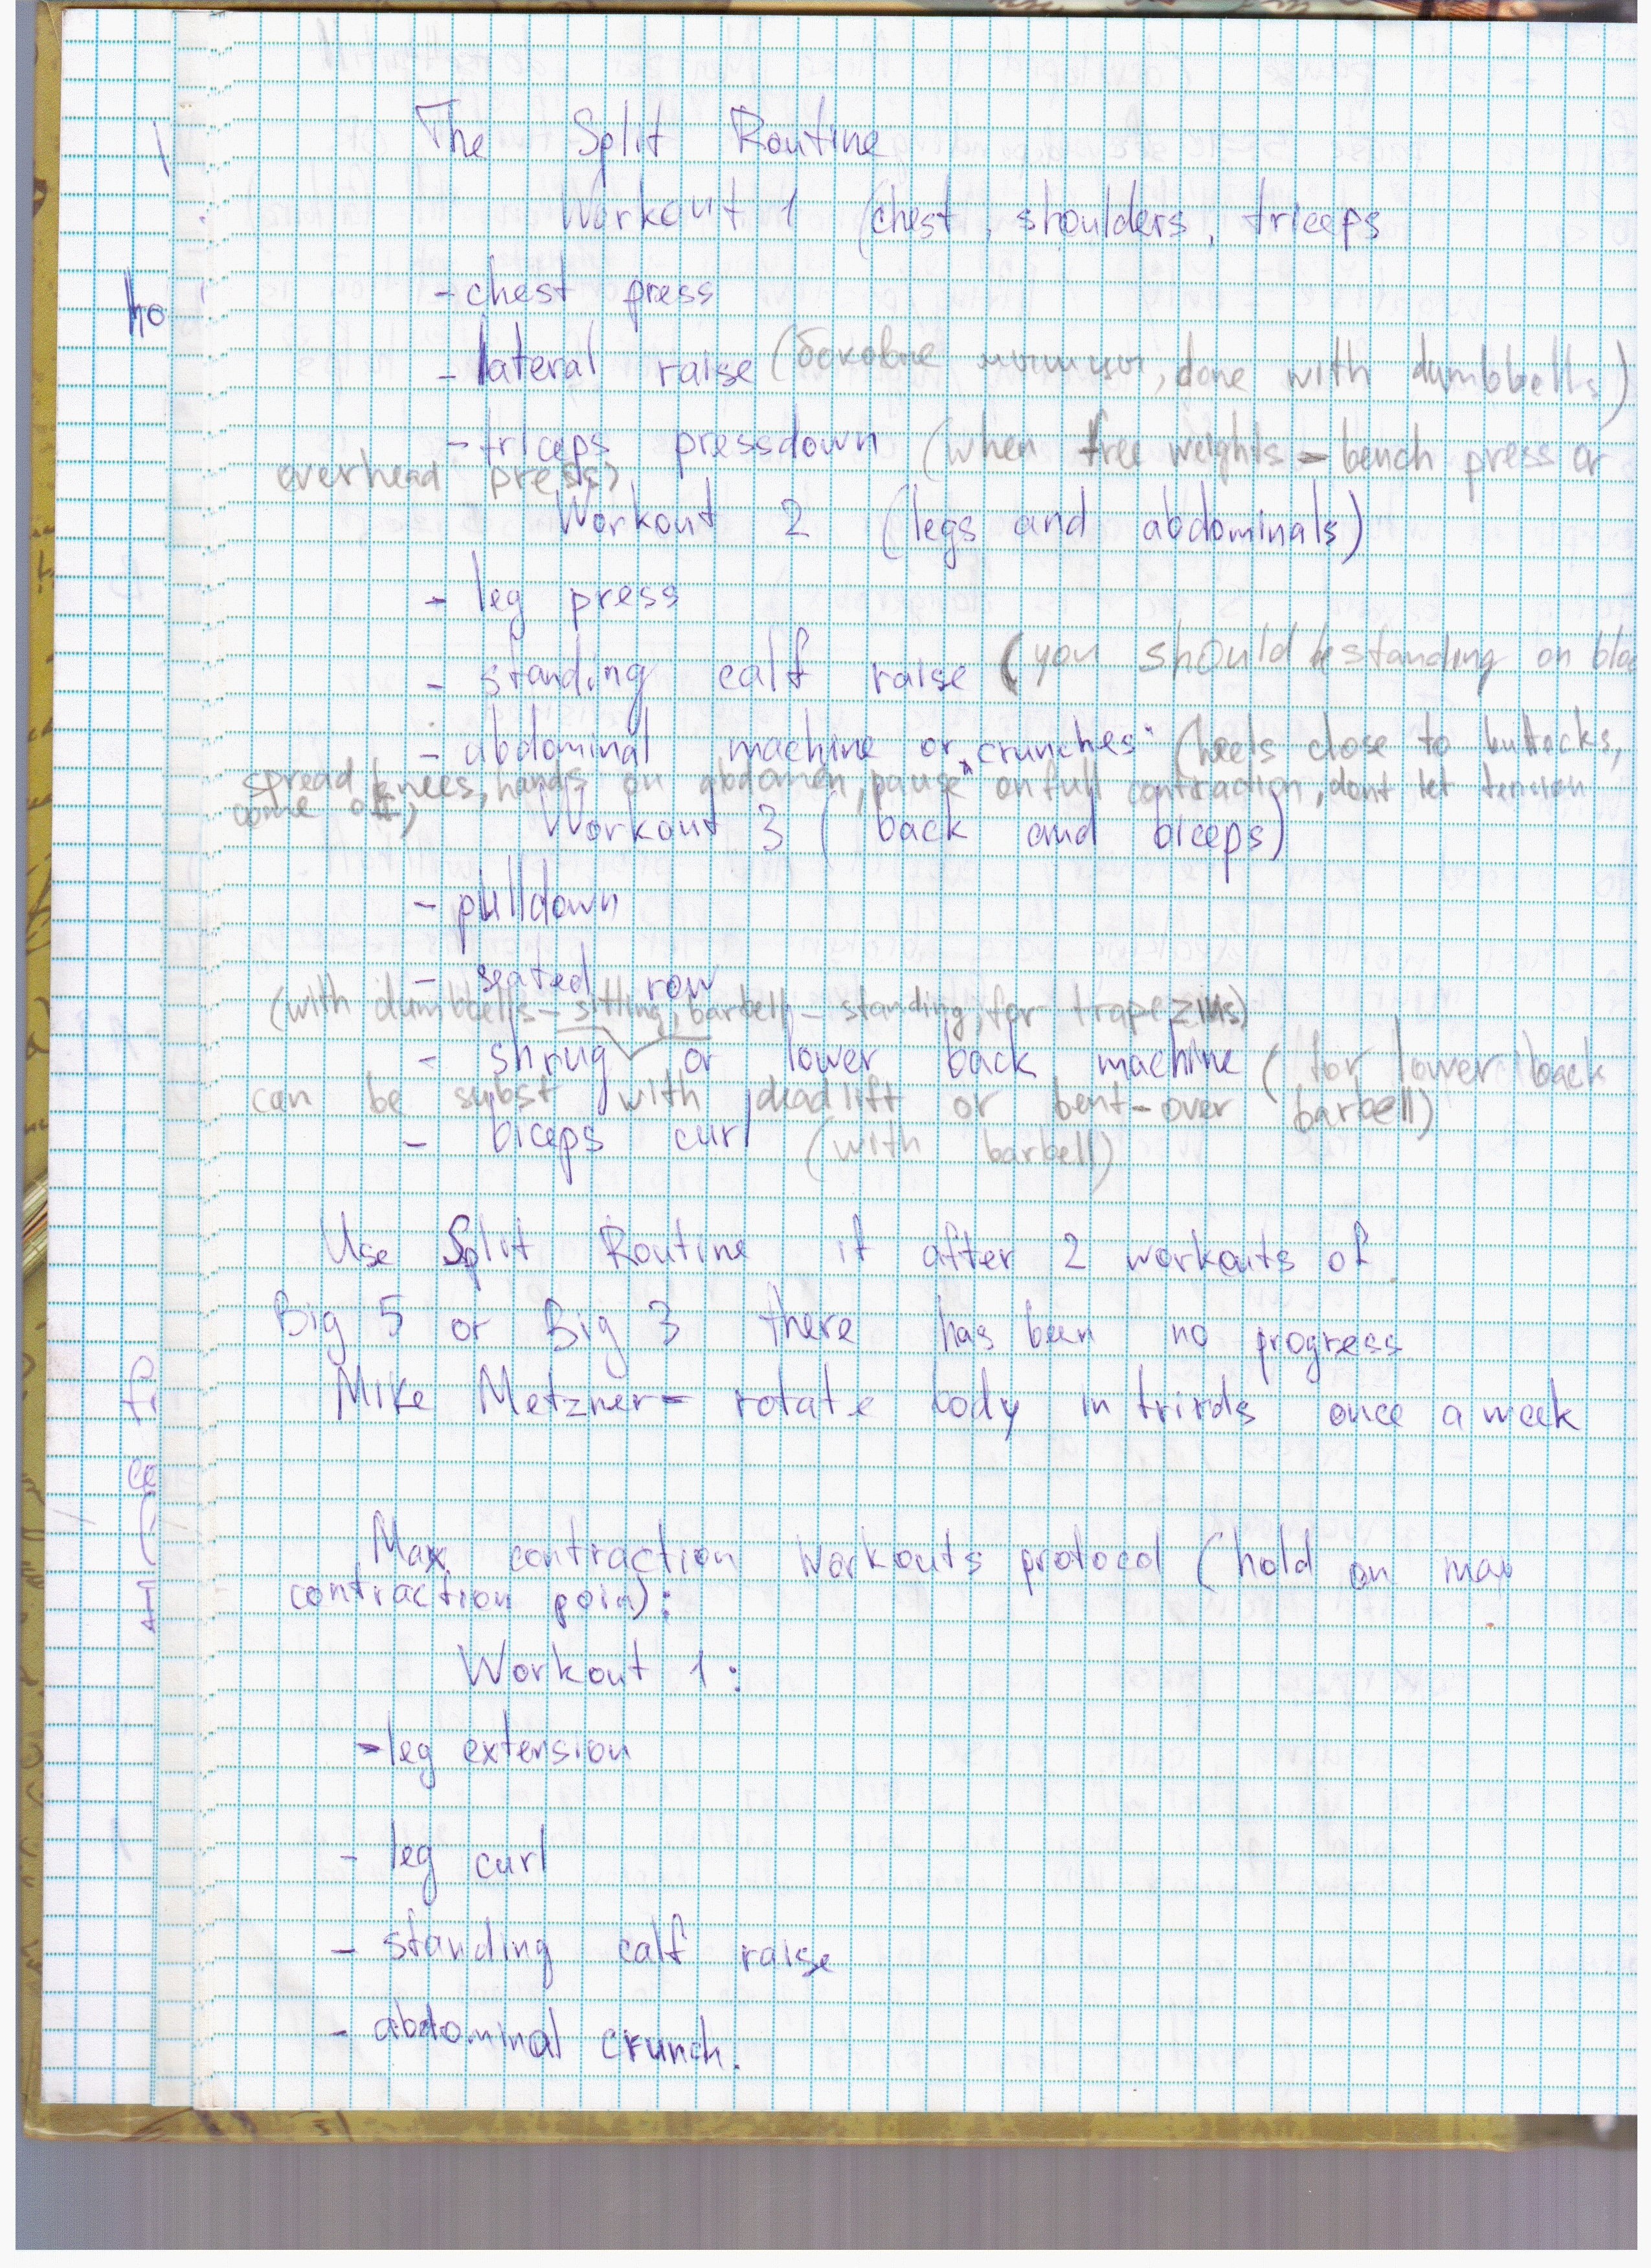 The Split Routine
Workout 1 (chest, shoulders, triceps
- chest press
ho
- lateral raise (боковые мышцы, done with dumbbells)
- triceps pressdown (when free weights - bench press or
overhead press)
Workout 2 (legs and abdominals)
- leg press
- standing calf raise (you should be standing on
- abdominal machine or „crunches" (heels close to buttocks,
spread knees, hands on abdomen, pause on full contraction, dont let tension
come off)
Workout 3 ( back and biceps)
- pulldown
- seated row
(with dumbbells - sitting, barbell - standing, for trapezius)
- shrug or lower back machine ( for lower back
can be subst with deadlift or bent-over barbell)
- biceps curl (with barbell)
Use Split Routine if after 2 workouts of
Big 5 or Big 3 there has been no progress
Mike Metzner - rotate body in trirds once a week
Max contraction workouts protocol (hold on max
contraction point):
Workout 1:
- leg extension
- leg curl
- standing calf raise
- abdominal crunch.